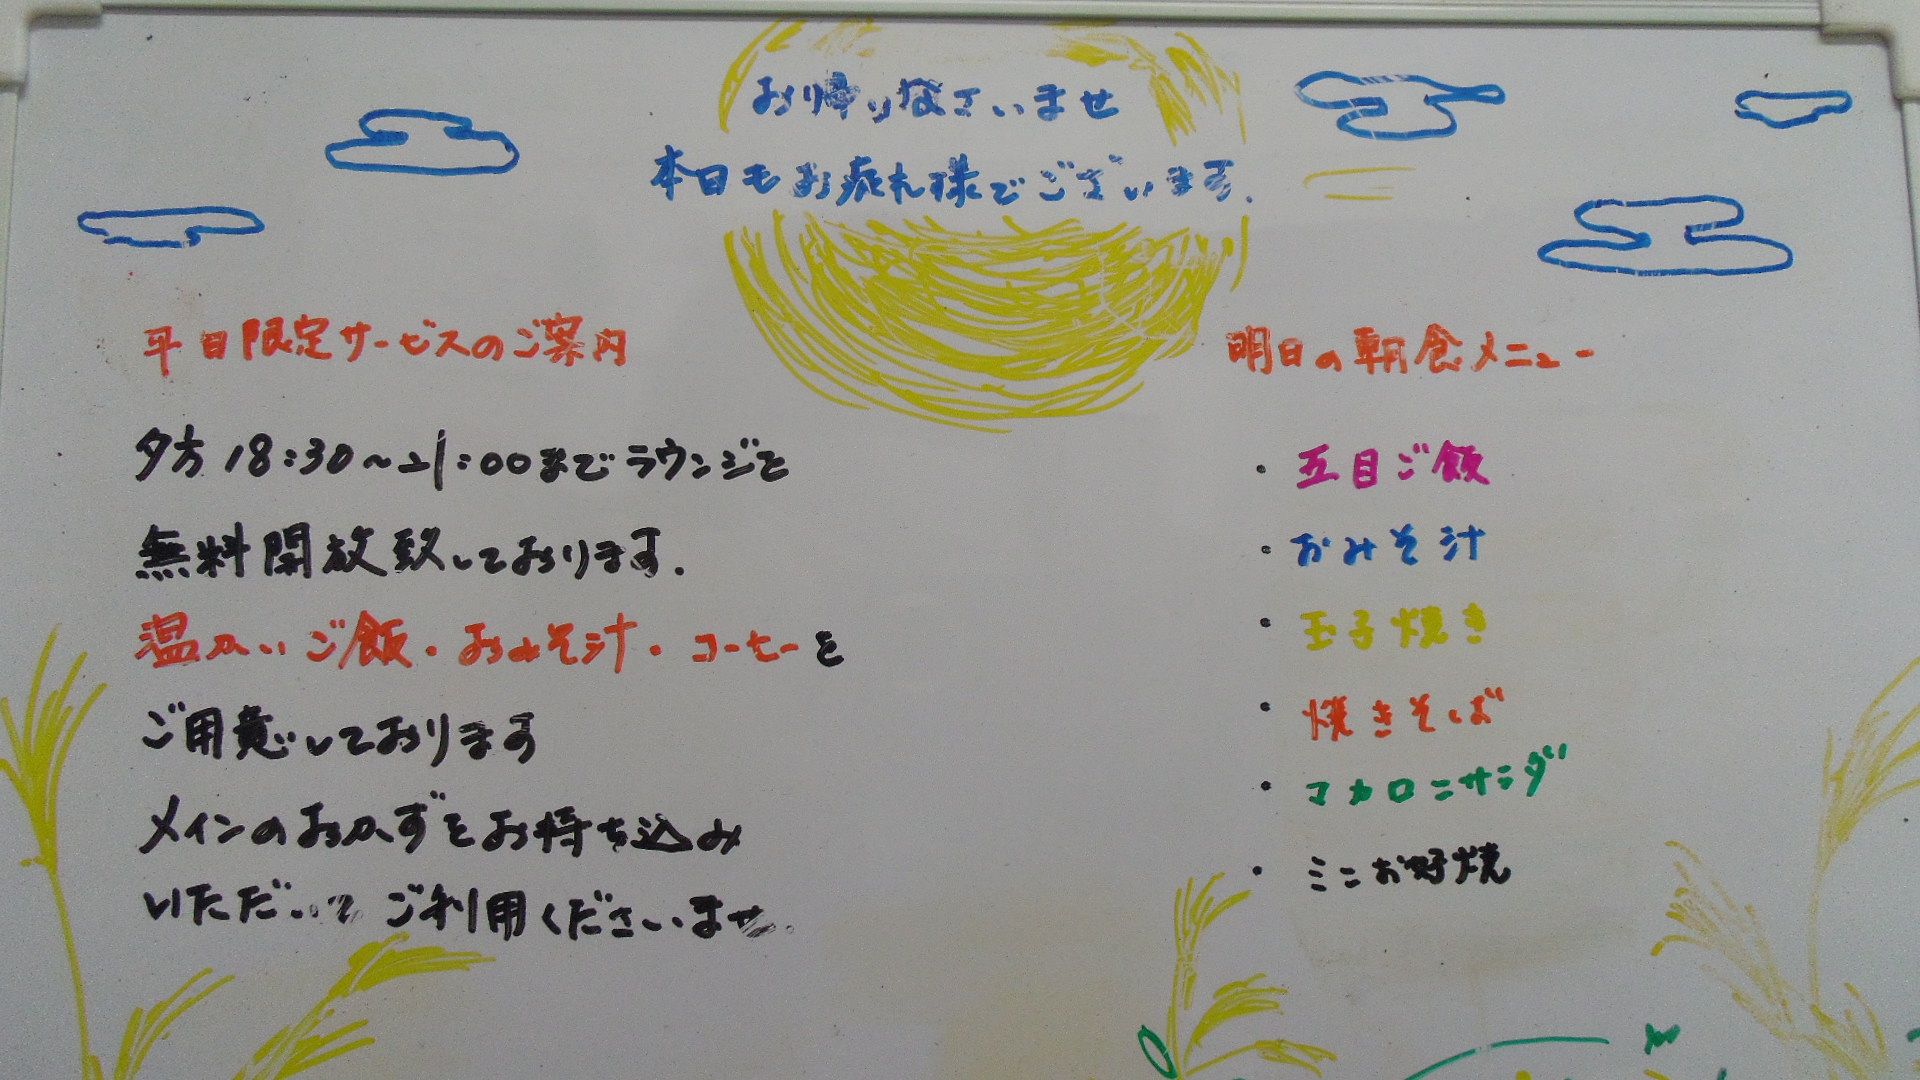 お帰りなさいませ
本日もお疲れ様でございます.
平日限定サービスのご案内
夕方18:30〜21:00までラウンジを
無料開放致しております.
温かいご飯・おみそ汁・コーヒーを
ご用意しております
メインのおかずをお持ち込み
いただいて ご利用くださいませ.
明日の朝食メニュー
・五目ご飯
・おみそ汁
・玉子焼き
・焼きそば
・マカロニサラダ
・ミニお好焼